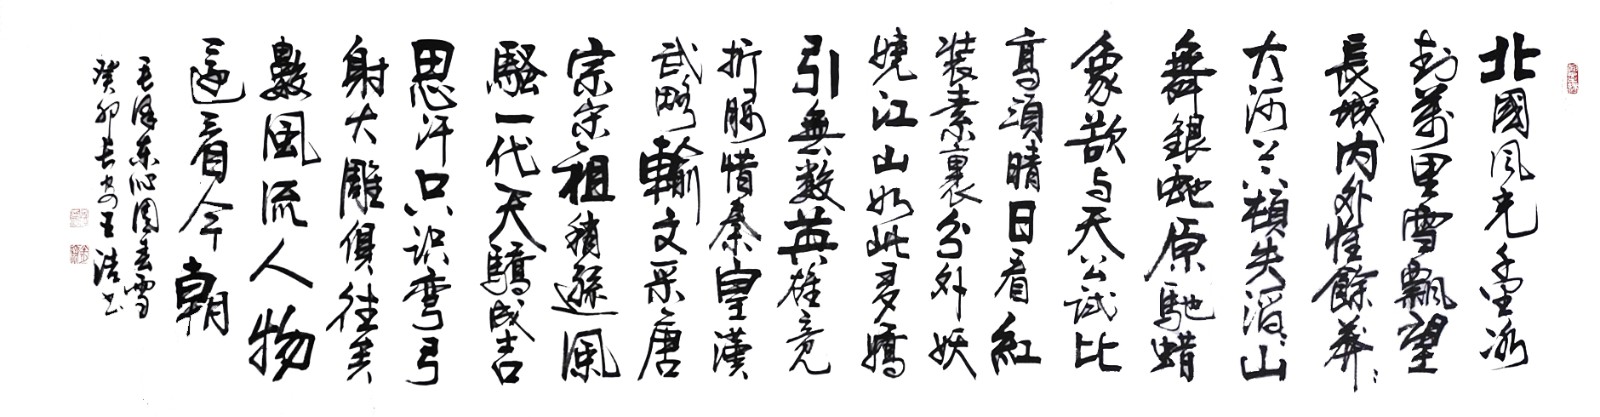 北國风光千里冰
封萬里雪飄望
長城内外惟餘莽〻
大河上下頓失滔〻山
舞銀蛇原馳蜡
象欲与天公試比
高須晴日看紅
装素裹分外妖
嬈江山如此多嬌
引無数英雄竞
折腰惜秦皇漢
武略輸文采唐
宗宋祖稍遜風
騷一代天驕成吉
思汗只识弯弓
射大雕俱往矣
數風流人物
還看今朝
毛泽东沁園春雪
癸卯长安王书